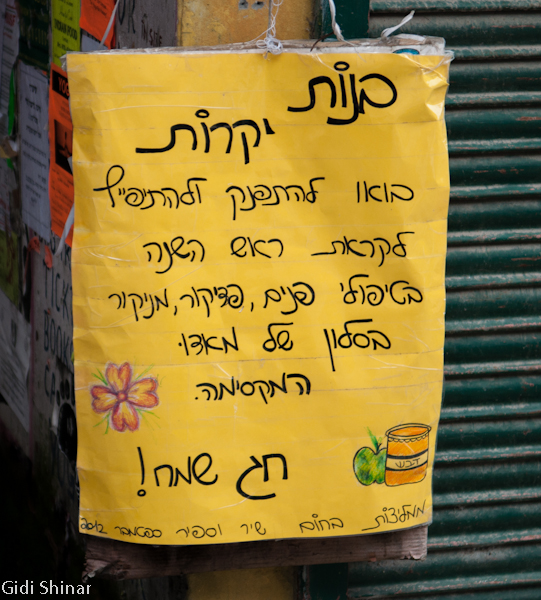 בנות
יקרות
בואו להתפנק ולהתיפייף
לקראת ראש השנה
בטיפולי פנים, פדיקור, מניקור
בסלון של מאדו.
המקסימה.
חג שמח!
דבש
ממליצות בחום שיר וספיר ספטמבר 2012
Gidi Shinar